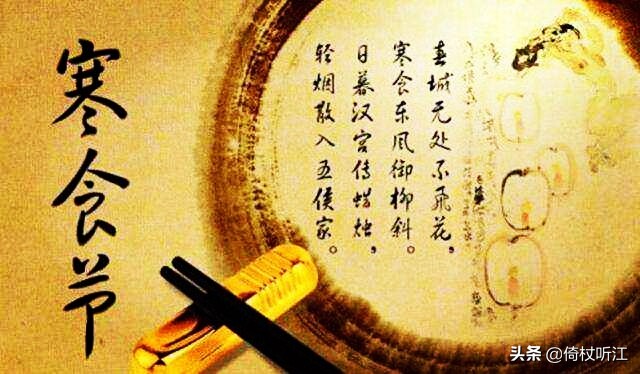 寒食节
春城无处不飞花，
寒食东风御柳斜。
日暮汉宫传蜡烛，
轻烟散入五侯家。
头条 @倚杖听江